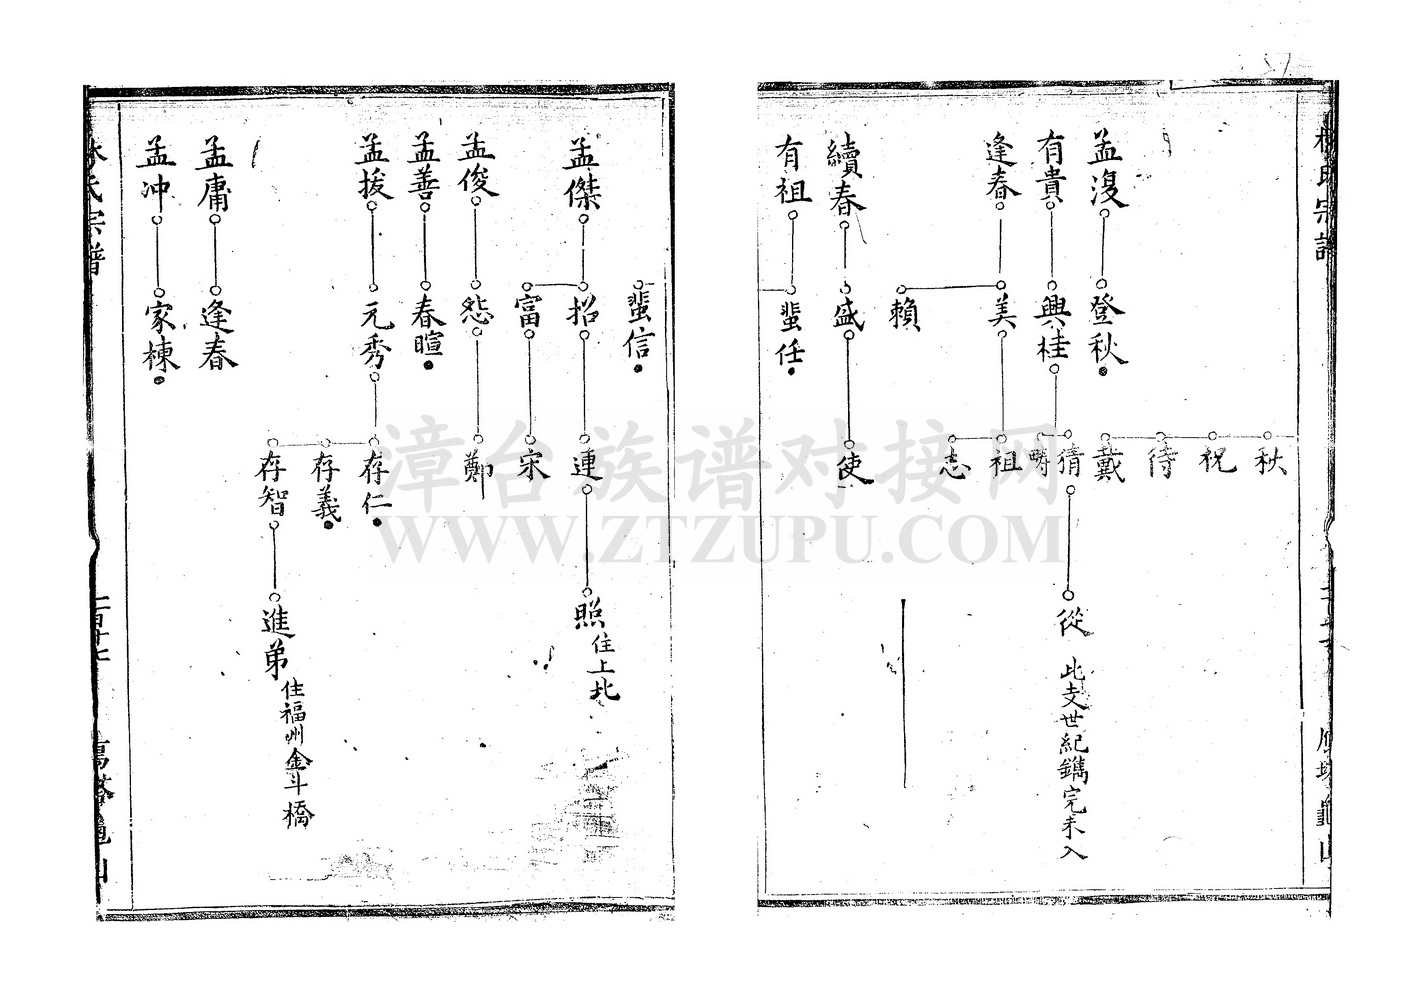 孟復
登秋
有貴
興桂
逢春
美
賴
續春
盛
有祖
蜚任
秋
祝
待
戴
猜
疇
祖
志
使
從
此支世紀鐫完未入
蜚信
孟傑
招
富
孟俊
怨
孟善
春暄
孟拔
元秀
孟庸
逢春
孟沖
家棟
連
宋
鄭
存仁
存義
存智
照
住上北
進弟
住福州金斗橋
氏宗譜
漳台族谱对接网
WWW.ZTZUPU.COM